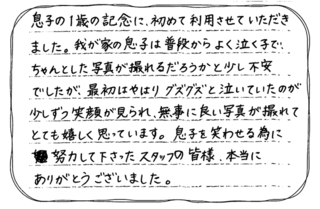 息子の1歳の記念に、初めて利用させていただき
ました。我が家の息子は普段からよく泣く子で、
ちゃんとした写真が撮れるだろうかと少し不安
でしたが、最初はやはりグズグズと泣いていたのが
少しずつ笑顔が見られ、無事に良い写真が撮れて
とても嬉しく思っています。息子を笑わせる為に
努力して下さったスタッフの皆様、本当に
ありがとうございました。